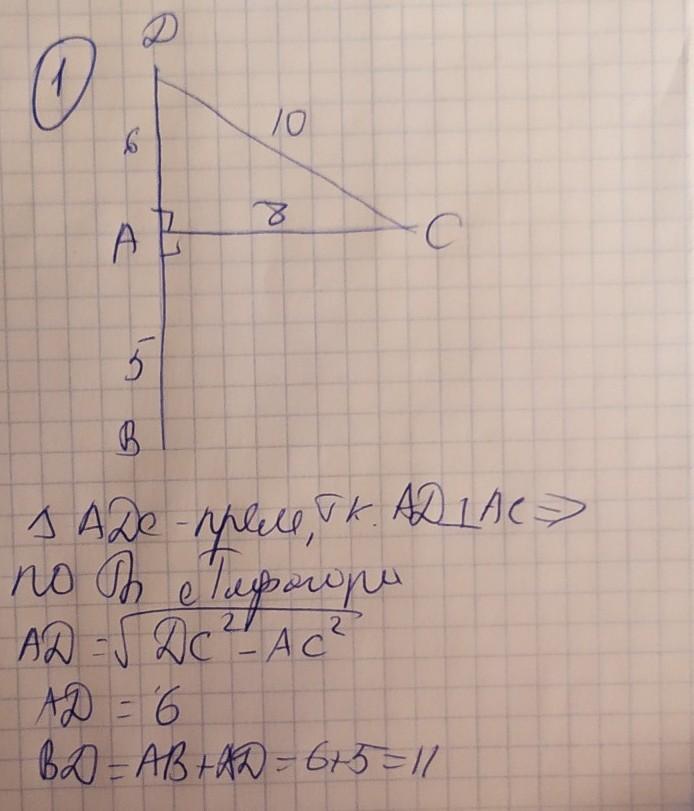 1
D
6
10
A
8
C
5
B
Δ ADC - прям, т.к. AD⊥AC ⇒
по Th Пифагора
AD = √DC² - AC²
AD = 6
BD = AB + AD = 6+5 = 11